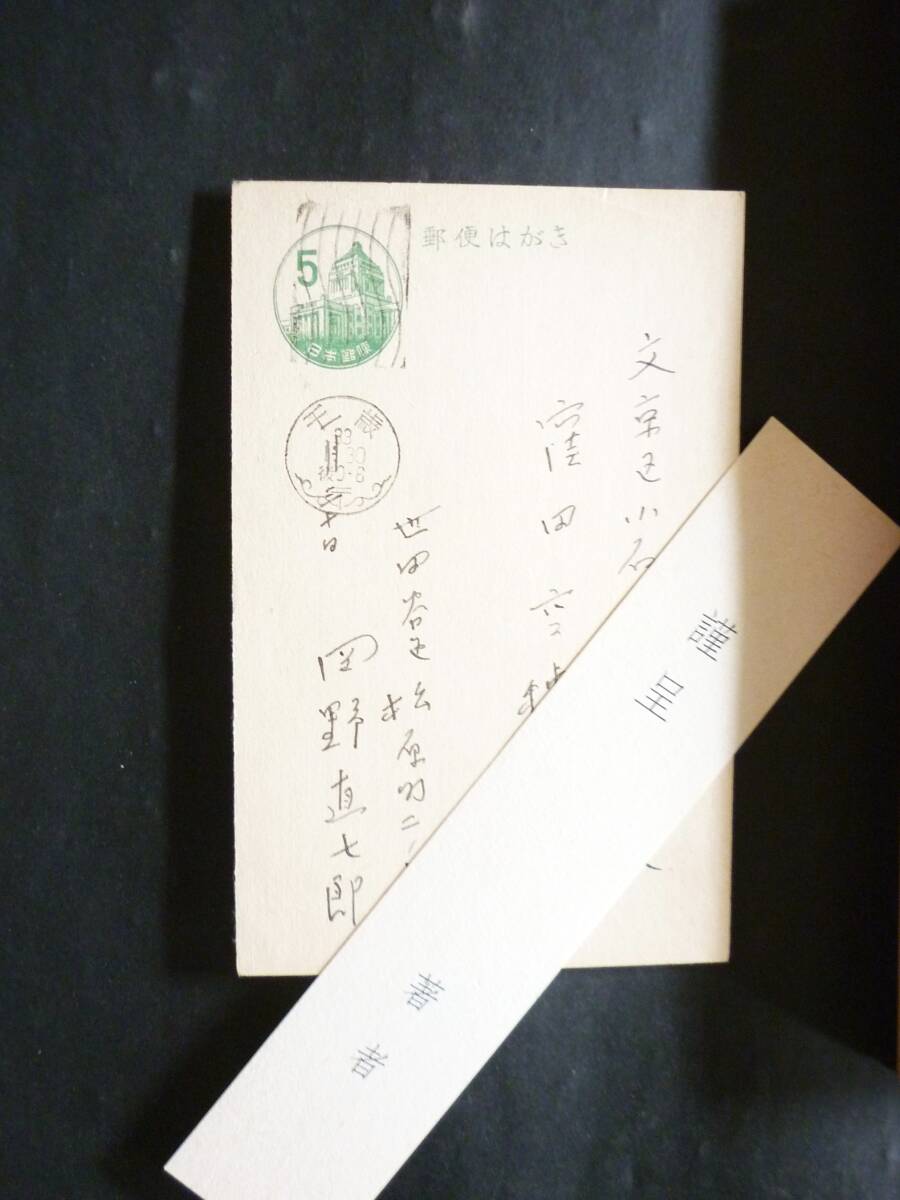 郵便はがき
5
日本郵便
千歳
33
11.30
後0-6
文京区小石
窪田空穂
世田谷区松原町二
岡野直七郎
十日
謹呈
著者